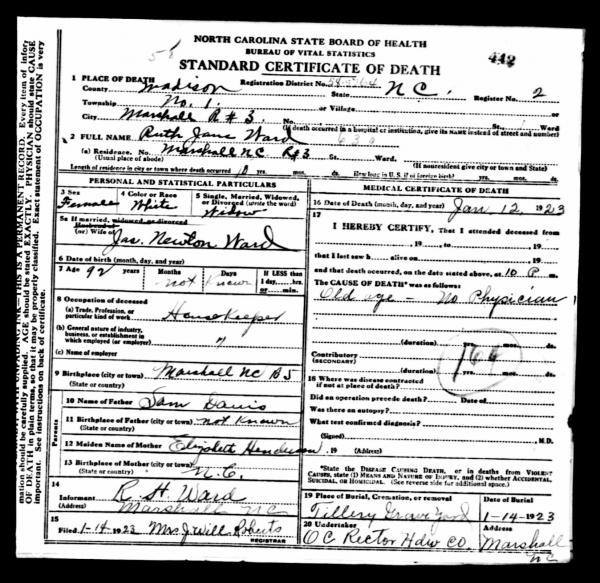 NORTH CAROLINA STATE BOARD OF HEALTH
BUREAU OF VITAL STATISTICS
STANDARD CERTIFICATE OF DEATH
442
1 PLACE OF DEATH
Registration District No.
County Madison State N.C. Register No. 2
Township No. 1. or Village
City Marshall R # 3. No. St. Ward
(If death occurred in a hospital or institution, give its NAME instead of street and number)
2 FULL NAME Ruth Jane Ward
(a) Residence. No. Marshall NC R#3 St. Ward.
(Usual place of abode) (If nonresident give city or town and State)
Length of residence in city or town where death occurred 10 yrs. mos. ds. How long in U. S. if of foreign birth? yrs. mos. ds.
PERSONAL AND STATISTICAL PARTICULARS
3 Sex Female
4 Color or Race White
5 Single, Married, Widowed, or Divorced (write the word) Widow
5a If married, widowed or divorced
Husband of
(or) Wife of Jas. Newton Ward
6 Date of birth (month, day, and year)
7 Age 92 years Months not Days Known
If LESS than 1 day, hrs. or min.
8 Occupation of deceased
(a) Trade, Profession, or particular kind of work House Keeper
(b) General nature of industry, business, or establishment in which employed (or employer)
(c) Name of employer
9 Birthplace (city or town) Marshall NC
(State or country)
Parents
10 Name of Father Sam Davis
11 Birthplace of Father (city or town) not Known
(State or country)
12 Maiden Name of Mother Elizabeth Henderson
13 Birthplace of Mother (city or town)
(State or country) N.C.
14
Informant R. H. Ward
(Address) Marshall NC
15
Filed 1-14 1923 Mrs J. Will Roberts
REGISTRAR
MEDICAL CERTIFICATE OF DEATH
16 Date of Death (month, day, and year) Jan 12, 1923
17
I HEREBY CERTIFY, That I attended deceased from
, 19 , to , 19
that I last saw h alive on , 19
and that death occurred, on the date stated above, at 10 P m.
The CAUSE OF DEATH* was as follows:
Old age - No Physician
(duration) yrs. mos. ds.
164
Contributory
(SECONDARY)
(duration) yrs. mos. ds.
18 Where was disease contracted
if not at place of death?
Did an operation precede death? Date of
Was there an autopsy?
What test confirmed diagnosis?
(Signed) M.D.
, 19 (Address)
*State the DISEASE CAUSING DEATH, or in deaths from VIOLENT CAUSES, state (1) MEANS AND NATURE OF INJURY, and (2) whether ACCIDENTAL, SUICIDAL, or HOMICIDAL. (See reverse side for additional space.)
19 Place of Burial, Cremation, or removal Tillery Grave Yard
Date of Burial 1-14-1923
20 Undertaker O C Rector Hdw Co.
Address Marshall NC
THIS IS A PERMANENT RECORD. Every item of infor-
mation should be carefully supplied. AGE should be stated EXACTLY. PHYSICIAN should state CAUSE
OF DEATH in plain terms, so that it may be properly classified. Exact statement of OCCUPATION is very
important. See instructions on back of certificate.